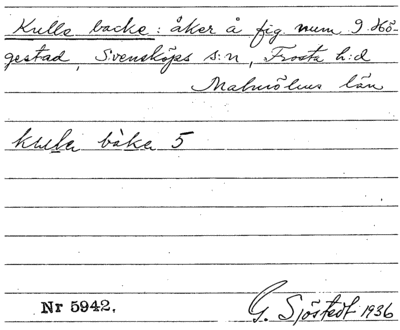 Kulle backe: åker å fig. num 9. Hö-
gestad, Svensköps s:n, Frosta h:d
Malmöhus län
kula bàka 5
Nr 5942.
G. Sjöstedt 1936